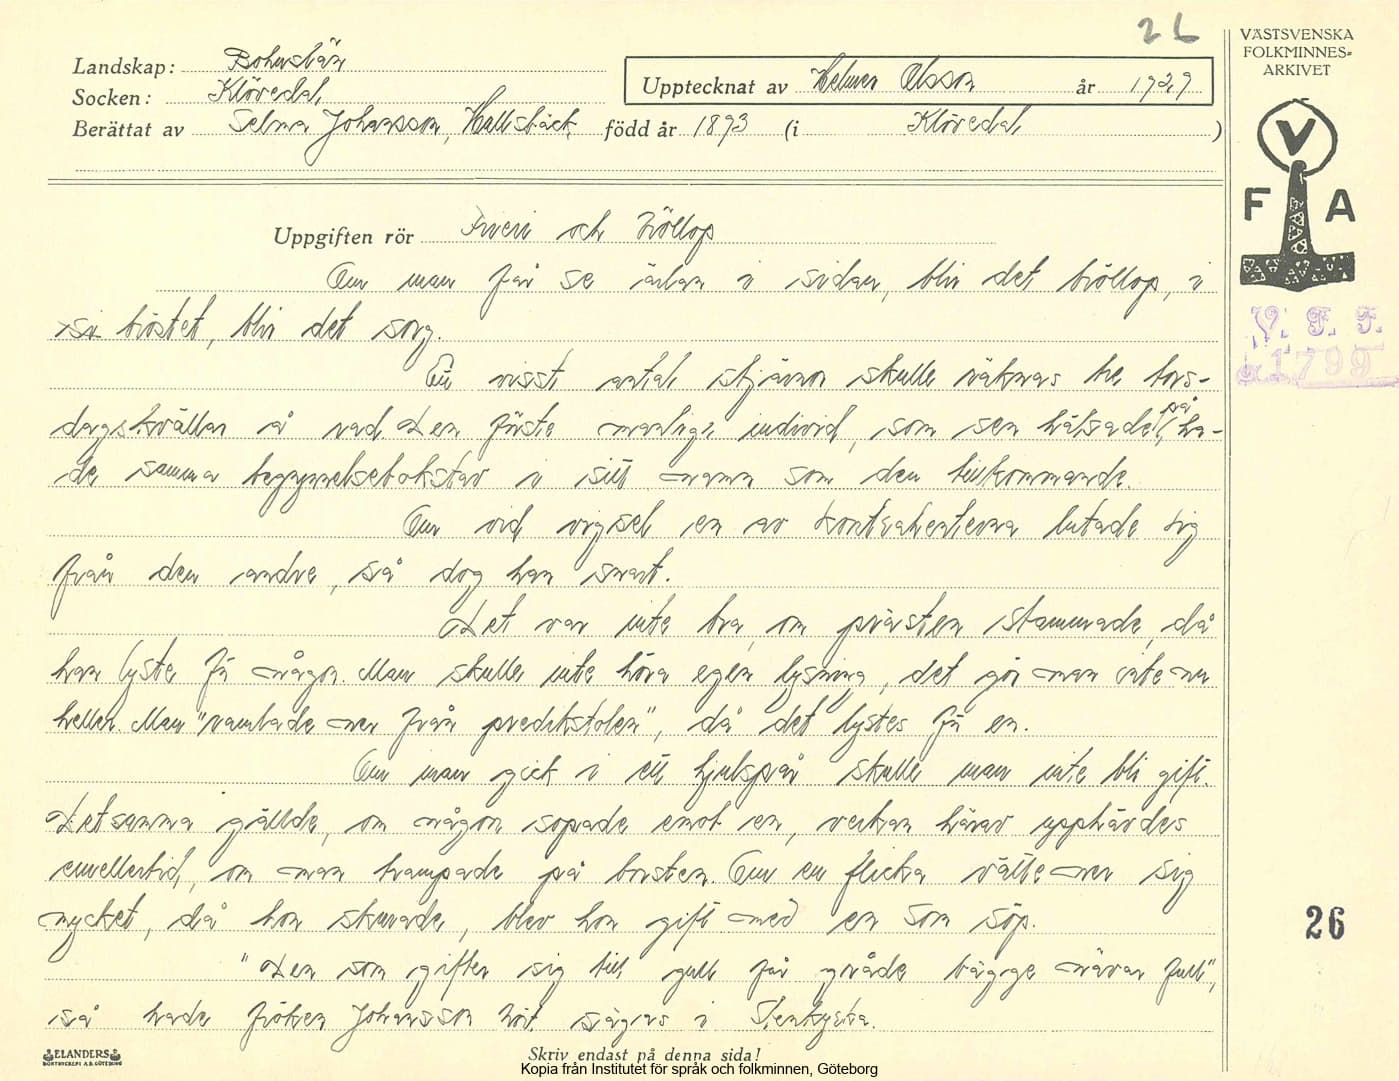 26
Landskap: Bohuslän
Socken: Klövedal
Berättat av Selma Johansson, Hallsbäck född år 1893 (i Klövedal)
Upptecknat av Helmer Olsson år 1929
VÄSTSVENSKA
FOLKMINNES=
ARKIVET
V
F A
V. F. F.
1799
Uppgiften rör Frieri och bröllop
Om man får se ärlan i sidan, blir det bröllop, i
bröstet, blir det sorg.
Ett visst antal stjärnor skulle räknas tre tors-
dagskvällar å rad. Den förste manlige individ, som sen hälsadet på, ha-
de samma begynnelsebokstav i sitt namn som den tillkommande.
Om vid vigsel en av kontrahenterna lutade sig
från den andre, så dog han snart.
Det var inte bra, om prästen stammade, då
han lyste för någon. Man skulle inte höra egen lysning, det gör man inte nu
heller. Man "ramlade ner från predikstolen", då det lystes för en.
Om man gick i ett hjulspår skulle man inte bli gift.
Detsamma gällde, om någon sopade emot en, verkan härav upphävdes
emellertid, om man trampade på borsten. Om en flicka vätte ner sig
mycket, då hon skurade, blev hon gift med en som söp.
"Den som gifter sig till gull får gråde bägge nävar full",
så hade fröken Johansson hört sägas i Stenkyrka.
26
ELANDERS
BOKTRYCKERI A.B. GÖTEBORG
Skriv endast på denna sida!
Kopia från Institutet för språk och folkminnen, Göteborg